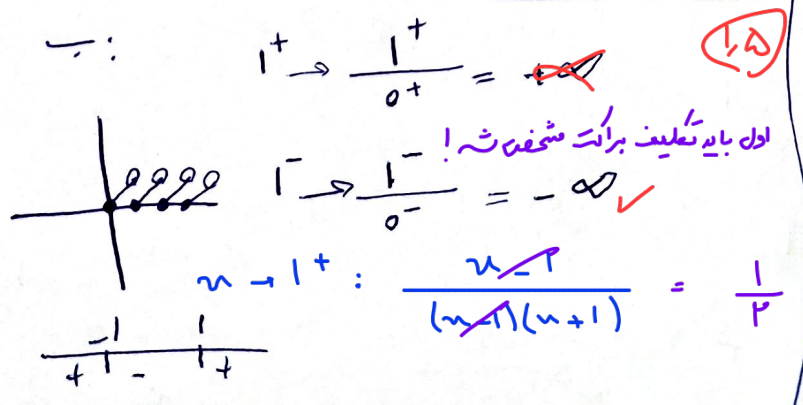 ب:
1⁺ → 1⁺/0⁺ = +∞
۱٫۵
اول باید تکلیف براکت مشخص شه!
1⁻ → 1⁻/0⁻ = -∞ ✓
x → 1⁺ : x-1/(x-1)(x+1) = 1/۲
-1 1
+ - +